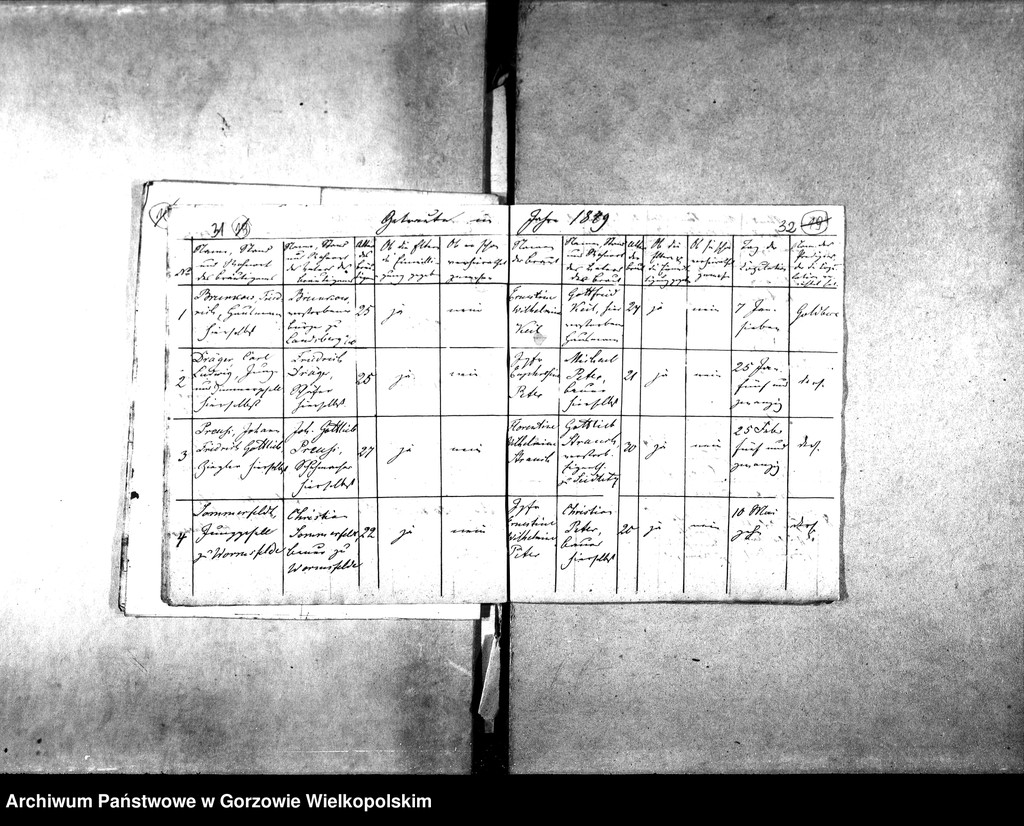 31
Getraute im
Jahre 1839
32
No
Name, Stand
und Wohnort
des Bräutigams
Name, Stand
und Wohnort
des Vaters des
Bräutigams
Alter
des
Ob die Eltern
die Einwilli-
gung gegeben
Ob er schon
verheirathet
gewesen
Namen
der Braut
Name, Stand
und Wohnort
des Vaters
der Braut
Alter
der
Braut
Ob die
Ob sie schon
verheirathet
gewesen
Tag der
Copulation
Name des
Predigers,
1
hierselbst
verstorbener
Bürger zu
Landsberg
25
ja
nein
Ernestine
Wilhelmine
Keil
Gottfried
Keil, hier
verstorbener
24
ja
nein
7 Jan.
sieben
2
Dräger Carl
Ludwig, Jung-
hierselbst
Friedrich
Dräger,
Schäfer
hierselbst
25
ja
nein
Jgfr
Peter
Michael
Peter,
Bauer
hierselbst
21
ja
nein
25 Jan.
fünf und
zwanzig
ders.
3
Preuss, Johann
Friedrich Gottlieb
Ziegler hierselbst
Joh. Gottlieb
Preuss,
Schuhmacher
hierselbst
27
ja
nein
Florentine
Wilhelmine
Strauch
Gottlieb
Strauch,
verstorb.
Eigenth.
30
ja
nein
25 Febr
fünf und
zwanzig
ders.
4
Sommerfeldt,
Junggeselle
zu Wormsfelde
Christian
Sommerfeldt
Bauer zu
Wormsfelde
22
ja
nein
Jgfr
Ernestine
Wilhelmine
Peter
Christian
Peter,
Bauer
hierselbst
20
ja
nein
10 Mai
zehn
ders.
Archiwum Państwowe w Gorzowie Wielkopolskim